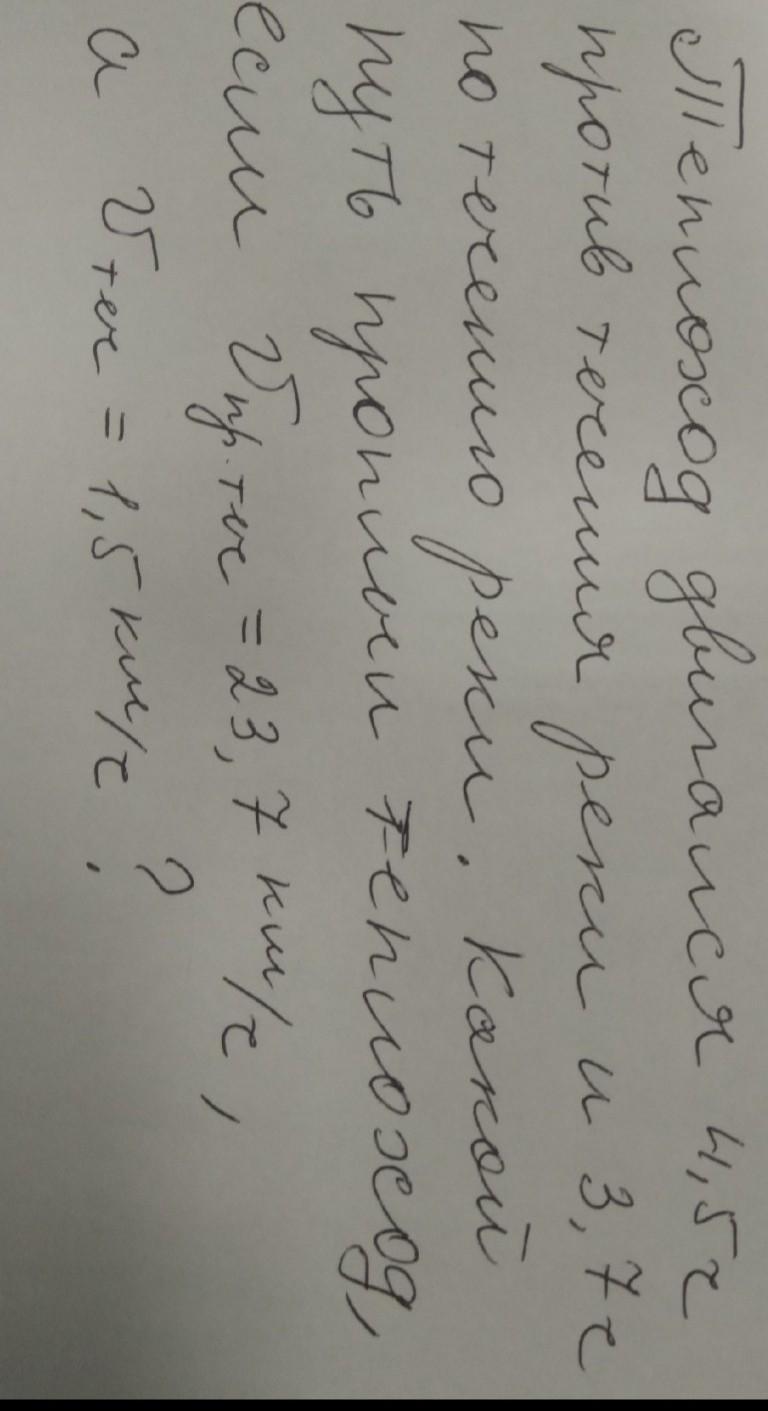 Теплоход двигался 4,5ч
против течения реки и 3,7ч
по течению реки. Какой
путь проплыл теплоход,
если V пр.теч = 23,7 км/ч,
а V теч = 1,5 км/ч ?